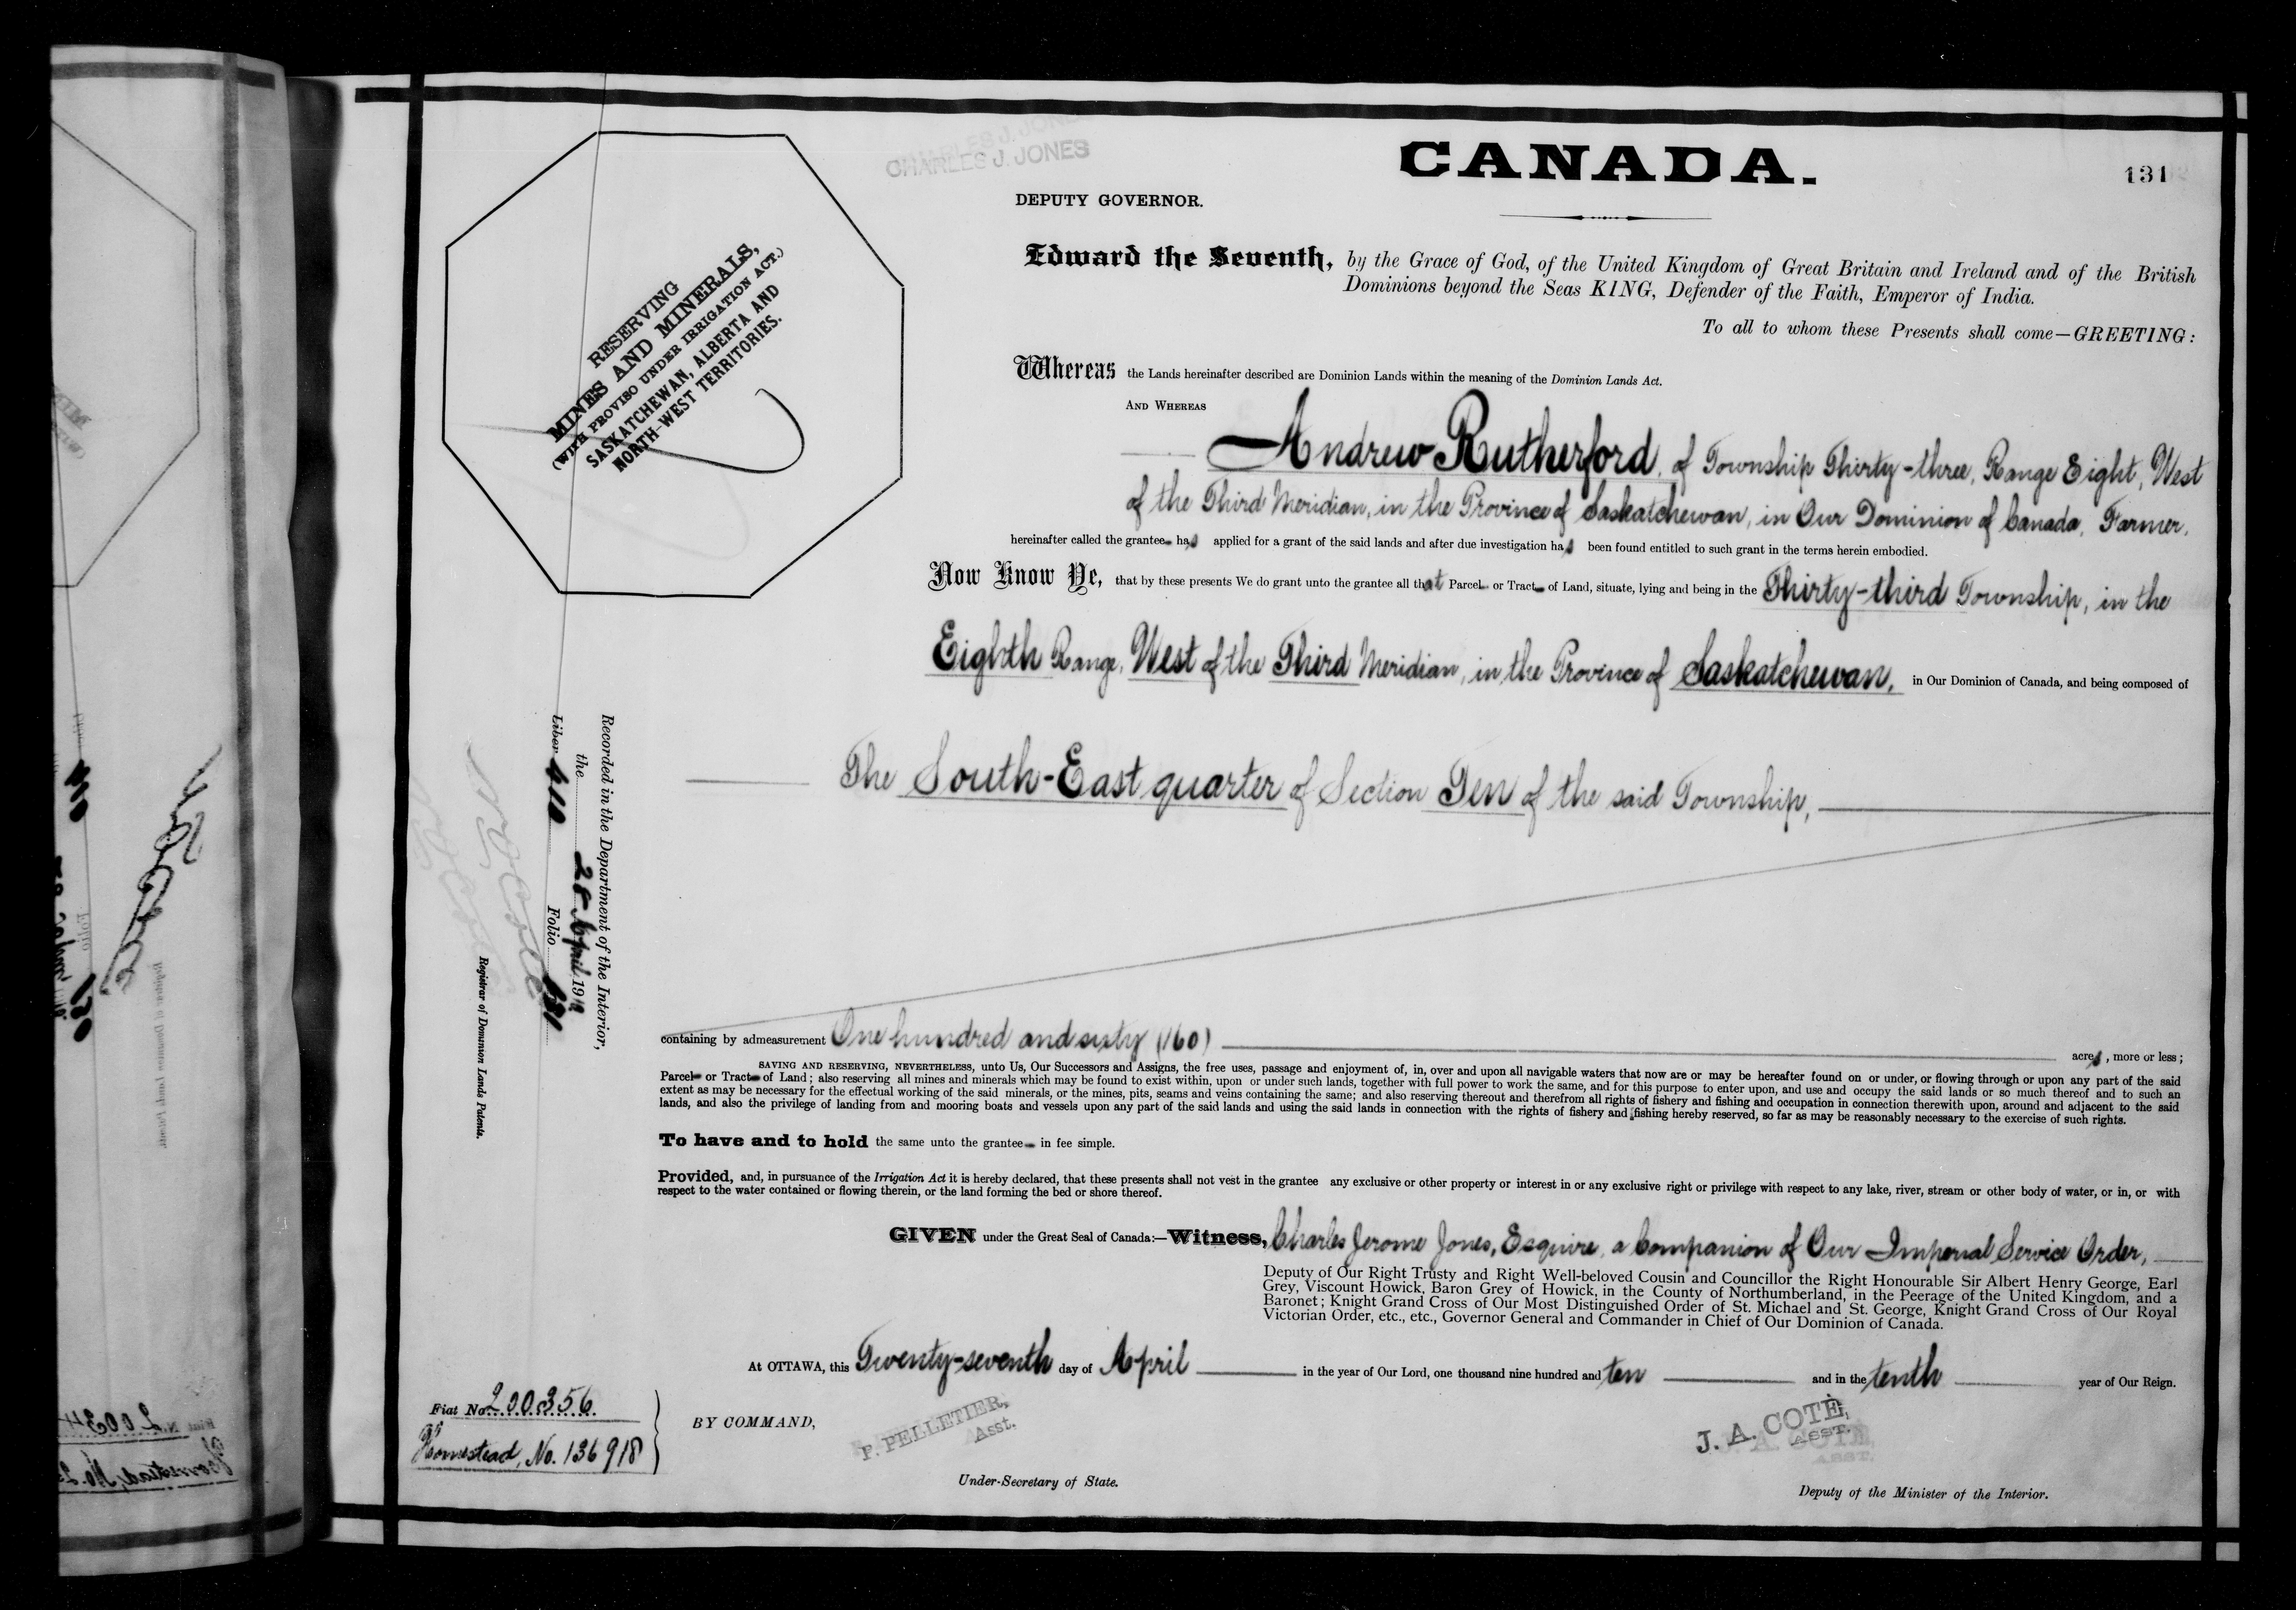 CHARLES J. JONES
CANADA.
131
DEPUTY GOVERNOR.
Edward the Seventh, by the Grace of God, of the United Kingdom of Great Britain and Ireland and of the British
Dominions beyond the Seas KING, Defender of the Faith, Emperor of India.
To all to whom these Presents shall come—GREETING:
RESERVING
MINES AND MINERALS,
(WITH PROVISO UNDER IRRIGATION ACT.)
SASKATCHEWAN, ALBERTA AND
NORTH-WEST TERRITORIES.
Whereas the Lands hereinafter described are Dominion Lands within the meaning of the Dominion Lands Act.
AND WHEREAS
Andrew Rutherford, of Township Thirty-three, Range Eight, West
of the Third Meridian, in the Province of Saskatchewan, in Our Dominion of Canada, Farmer,
hereinafter called the grantee has applied for a grant of the said lands and after due investigation has been found entitled to such grant in the terms herein embodied.
Now Know Ye, that by these presents We do grant unto the grantee all that Parcel or Tract of Land, situate, lying and being in the Thirty-third Township, in the
Eighth Range, West of the Third Meridian, in the Province of Saskatchewan, in Our Dominion of Canada, and being composed of
The South-East quarter of Section Ten of the said Township,
Recorded in the Department of the Interior,
the 28 April 191
Liber 610 Folio 131
Registrar of Dominion Lands Patents.
containing by admeasurement One hundred and sixty (160) acres, more or less;
SAVING AND RESERVING, NEVERTHELESS, unto Us, Our Successors and Assigns, the free uses, passage and enjoyment of, in, over and upon all navigable waters that now are or may be hereafter found on or under, or flowing through or upon any part of the said
Parcel or Tract of Land; also reserving all mines and minerals which may be found to exist within, upon or under such lands, together with full power to work the same, and for this purpose to enter upon, and use and occupy the said lands or so much thereof and to such an
extent as may be necessary for the effectual working of the said minerals, or the mines, pits, seams and veins containing the same; and also reserving thereout and therefrom all rights of fishery and fishing and occupation in connection therewith upon, around and adjacent to the said
lands, and also the privilege of landing from and mooring boats and vessels upon any part of the said lands and using the said lands in connection with the rights of fishery and fishing hereby reserved, so far as may be reasonably necessary to the exercise of such rights.
To have and to hold the same unto the grantee in fee simple.
Provided, and, in pursuance of the Irrigation Act it is hereby declared, that these presents shall not vest in the grantee any exclusive or other property or interest in or any exclusive right or privilege with respect to any lake, river, stream or other body of water, or in, or with
respect to the water contained or flowing therein, or the land forming the bed or shore thereof.
GIVEN under the Great Seal of Canada:—Witness, Charles Jerome Jones, Esquire, a Companion of Our Imperial Service Order,
Deputy of Our Right Trusty and Right Well-beloved Cousin and Councillor the Right Honourable Sir Albert Henry George, Earl
Grey, Viscount Howick, Baron Grey of Howick, in the County of Northumberland, in the Peerage of the United Kingdom, and a
Baronet; Knight Grand Cross of Our Most Distinguished Order of St. Michael and St. George, Knight Grand Cross of Our Royal
Victorian Order, etc., etc., Governor General and Commander in Chief of Our Dominion of Canada.
At OTTAWA, this Twenty-seventh day of April in the year of Our Lord, one thousand nine hundred and ten and in the tenth year of Our Reign.
Fiat No. 200356
Homestead, No. 136918
BY COMMAND,
P. PELLETIER,
Asst.
Under-Secretary of State.
J. A. COTÉ,
ASST.
Deputy of the Minister of the Interior.